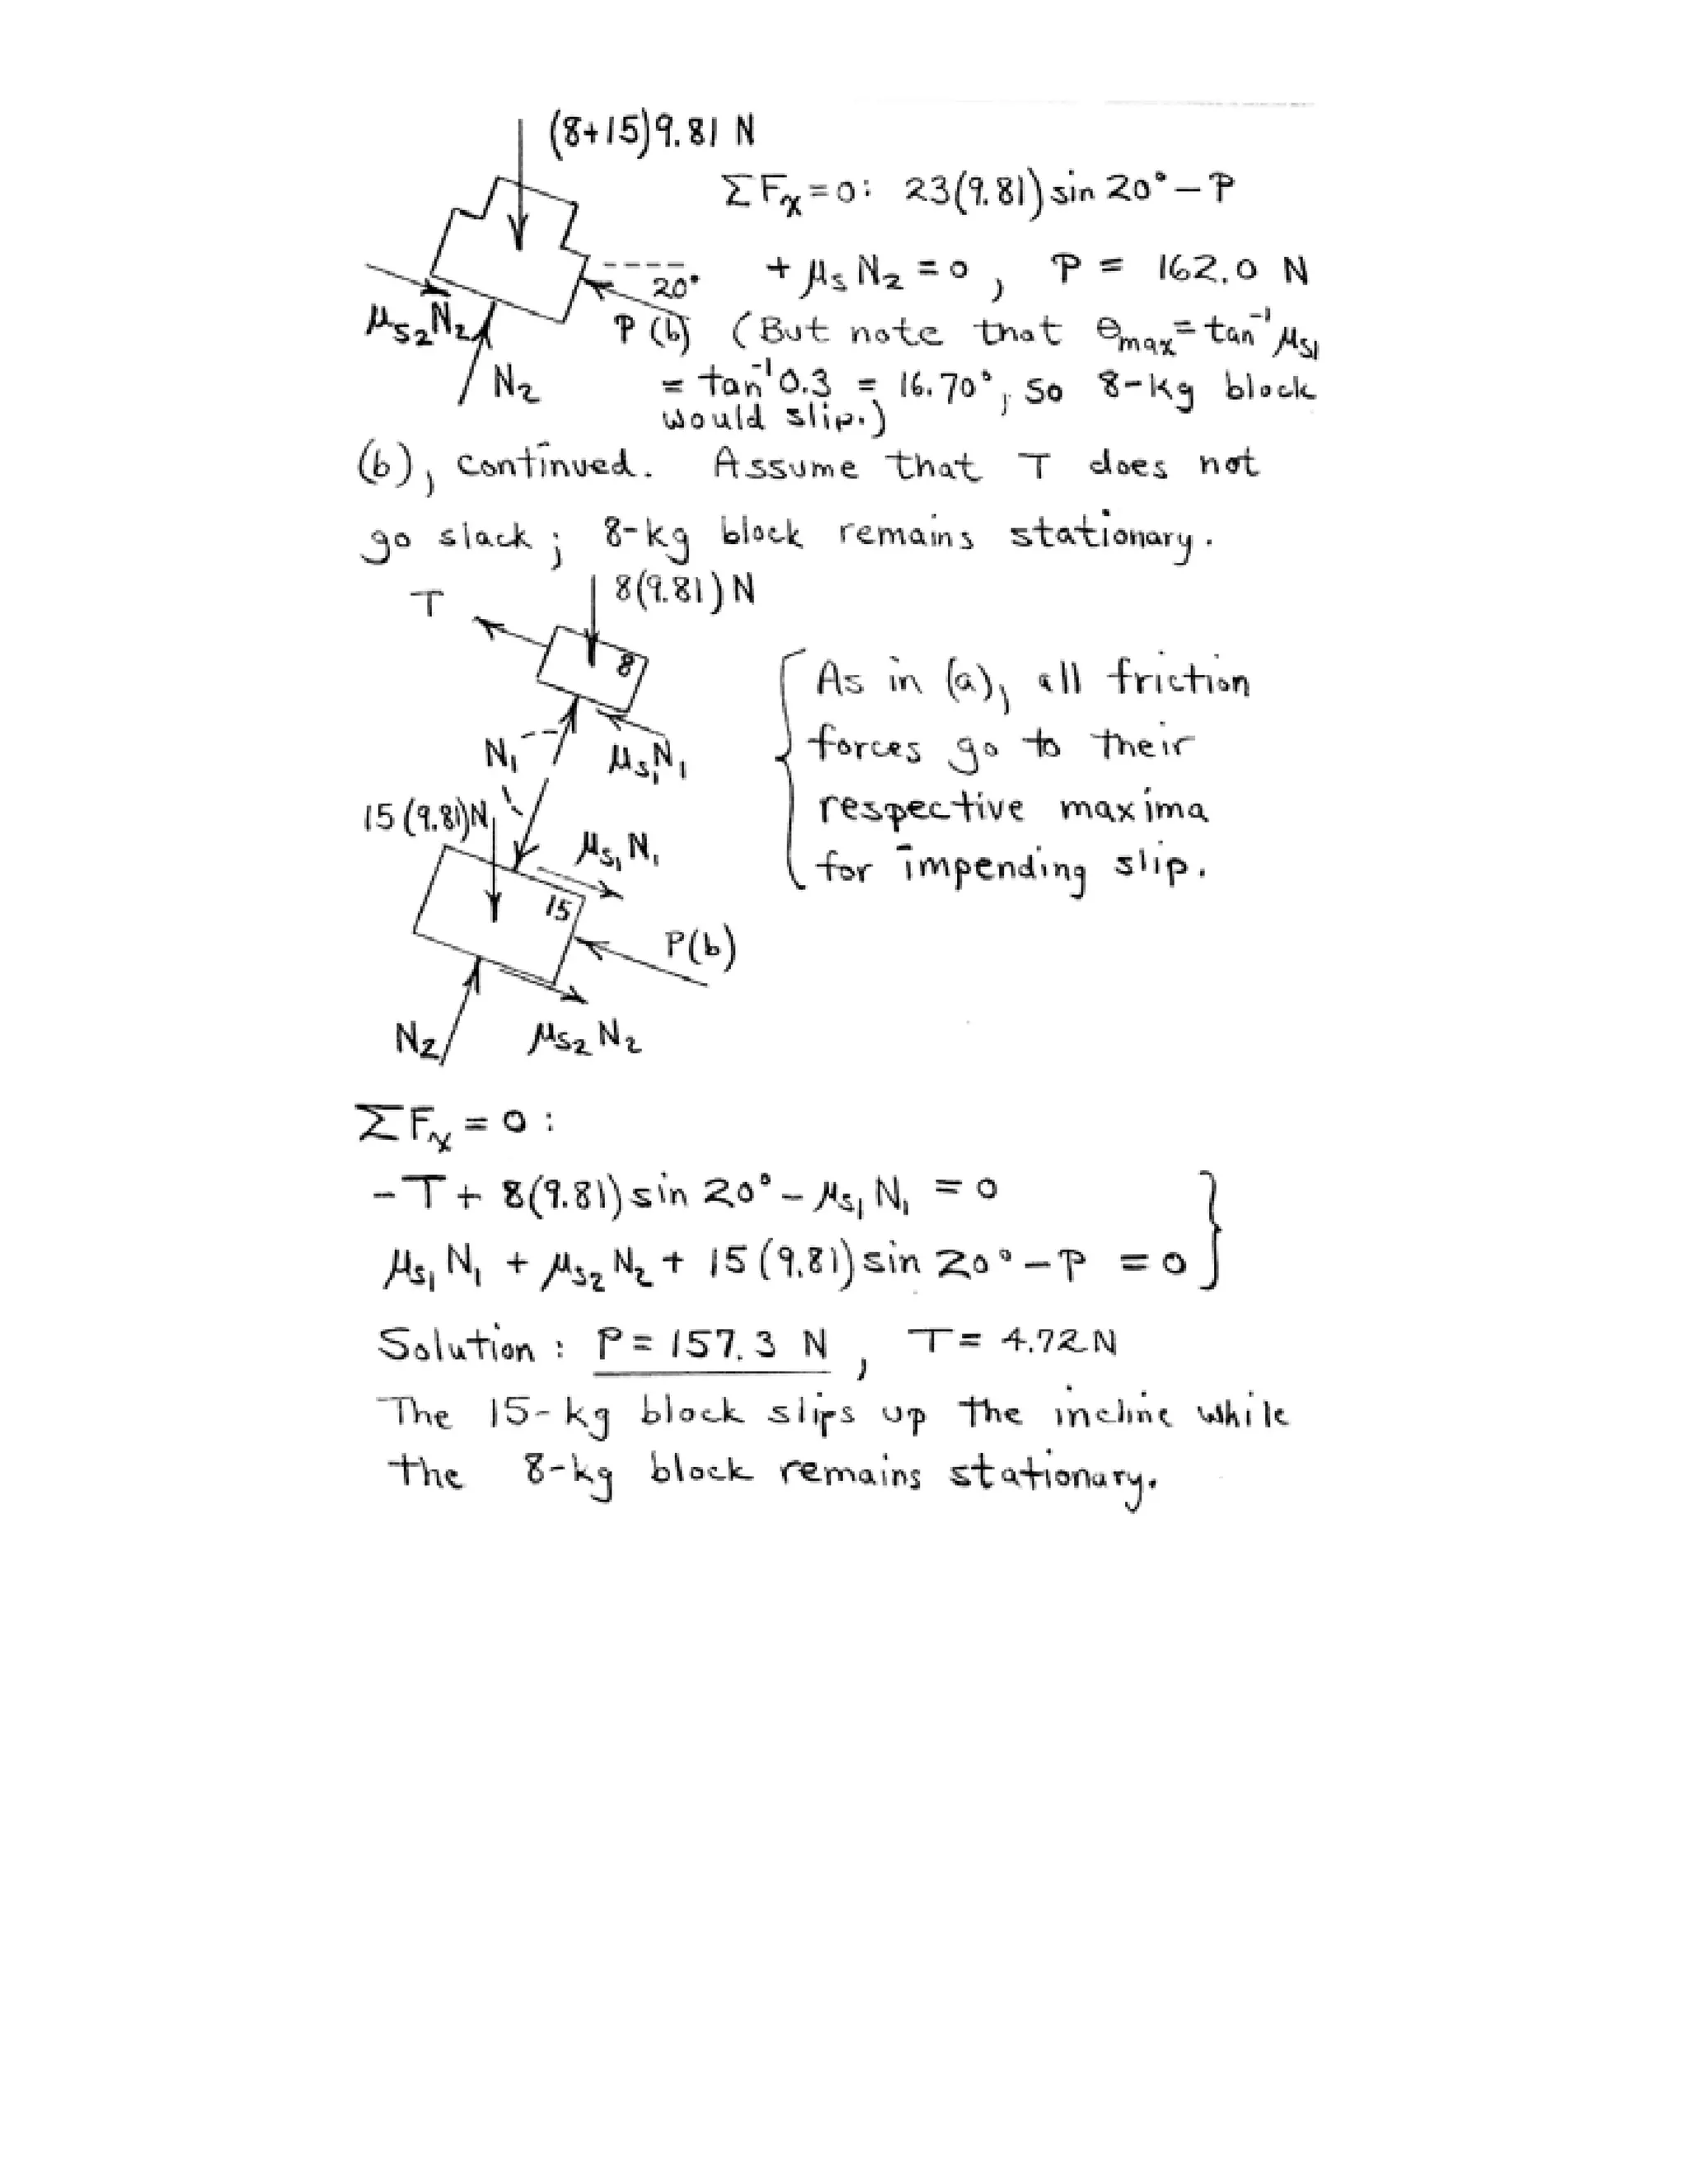 (8+15)9.81 N
ΣFₓ=0: 23(9.81) sin 20° − P
+ μₛ N₂ = 0, P = 162.0 N
20°
μₛ₂N₂
P (b)
N₂
(But note that θmax = tan⁻¹ μₛ₁
= tan⁻¹ 0.3 = 16.70°, so 8-kg block
would slip.)
(b), continued. Assume that T does not
go slack; 8-kg block remains stationary.
T
8(9.81) N
8
N₁
μₛ₁N₁
As in (a), all friction
forces go to their
respective maxima
for impending slip.
15 (9.81)N
μₛ₁ N₁
15
P(b)
N₂
μₛ₂ N₂
ΣFₓ = 0 :
−T + 8(9.81) sin 20° − μₛ₁ N₁ = 0
μₛ₁ N₁ + μₛ₂ N₂ + 15 (9.81) sin 20° − P = 0
Solution : P = 157.3 N , T = 4.72 N
The 15-kg block slips up the incline while
the 8-kg block remains stationary.